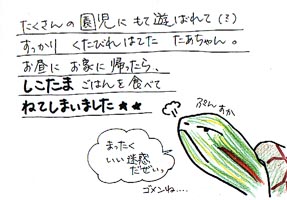 たくさんの園児に もて遊ばれて(?)
すっかり くたびれはてた たあちゃん。
お昼に お家に帰ったら、
しこたま ごはんを食べて
ねてしまいました★★
ぷんすか
まったく
いい迷惑
だぜぃっ
ゴメンね....